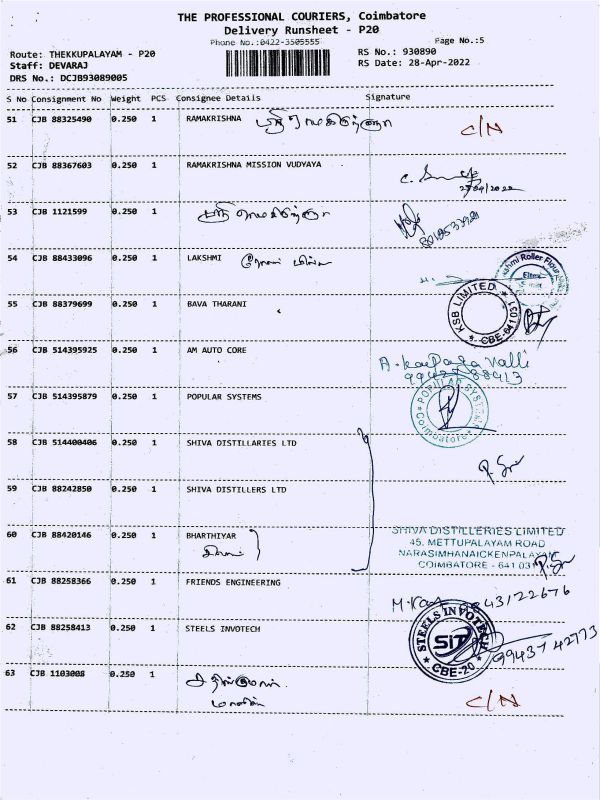 THE PROFESSIONAL COURIERS, Coimbatore
Delivery Runsheet - P20
Phone No.:0422-3505555
Page No.:5
Route: THEKKUPALAYAM - P20
RS No.: 930890
Staff: DEVARAJ
RS Date: 28-Apr-2022
DRS No.: DCJB93089005
S No Consignment No Weight PCS Consignee Details Signature
51 CJB 88325490 0.250 1 RAMAKRISHNA C/N
52 CJB 88367603 0.250 1 RAMAKRISHNA MISSION VUDYAYA
53 CJB 1121599 0.250 1
54 CJB 88433096 0.250 1 LAKSHMI
KSB LIMITED
CBE-641031
55 CJB 88379699 0.250 1 BAVA THARANI
56 CJB 514395925 0.250 1 AM AUTO CORE
57 CJB 514395879 0.250 1 POPULAR SYSTEMS
POPULAR SYSTEMS
Coimbatore
58 CJB 514400406 0.250 1 SHIVA DISTILLARIES LTD
59 CJB 88242850 0.250 1 SHIVA DISTILLERS LTD
60 CJB 88420146 0.250 1 BHARTHIYAR
SHIVA DISTILLERIES LIMITED
45, METTUPALAYAM ROAD
NARASIMHANAICKENPALAYAM
COIMBATORE - 641 031
61 CJB 88258366 0.250 1 FRIENDS ENGINEERING
9843122676
62 CJB 88258413 0.250 1 STEELS INVOTECH
STEELS INVOTECH
SIT
CBE-20
9943742773
63 CJB 1103008 0.250 1 C/N